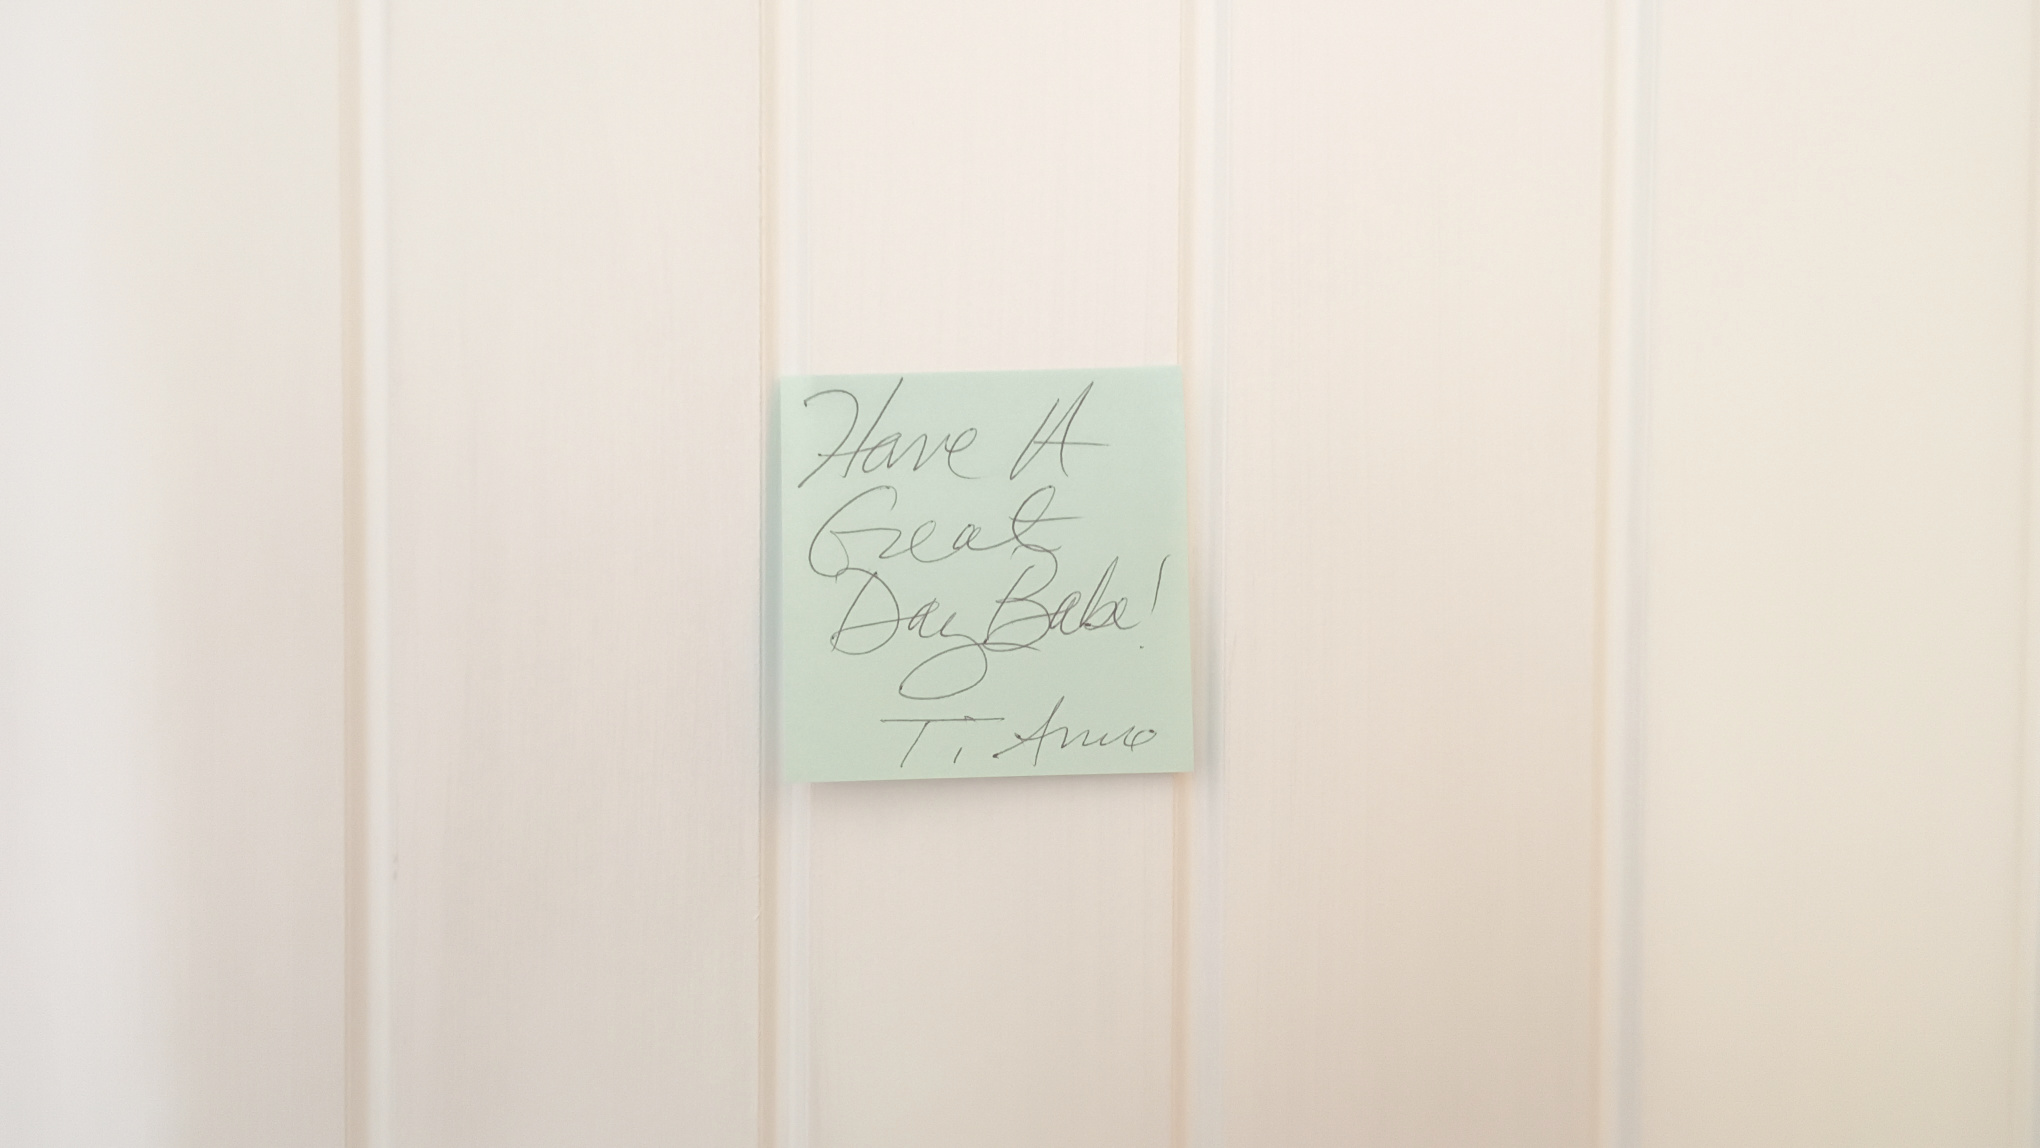 Have A
Great
Day Babe!
Ti Amo